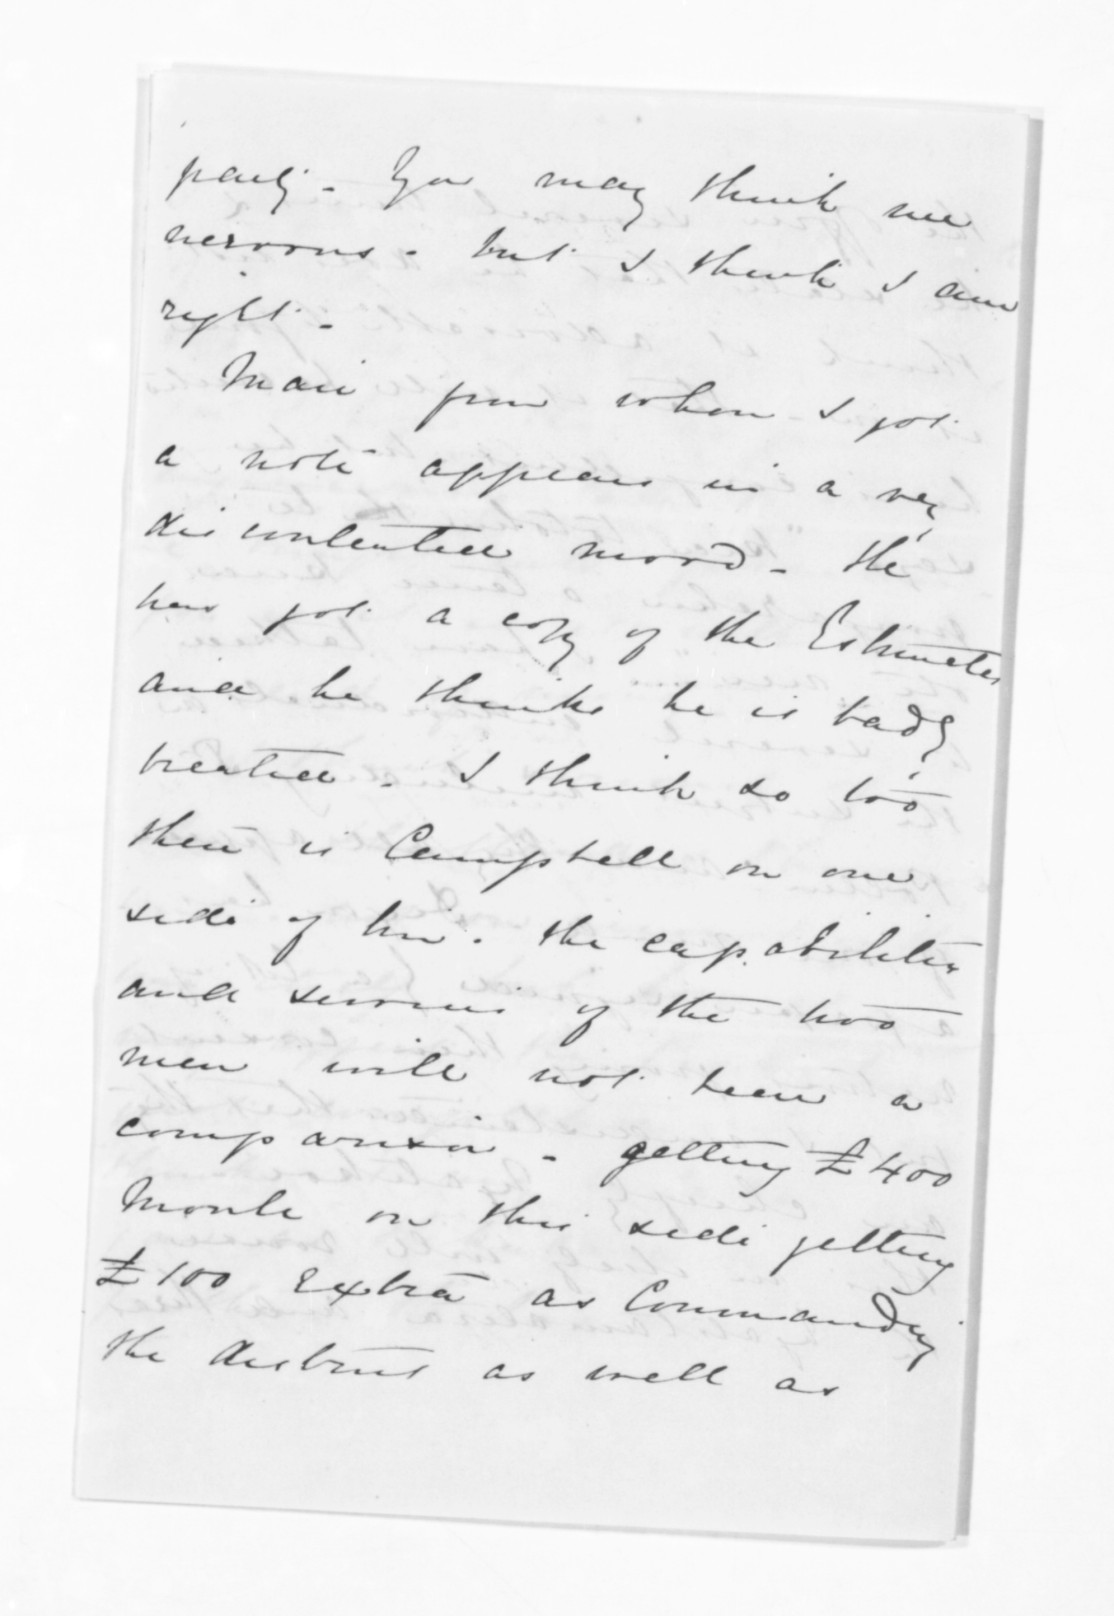 party. You may think me
nervous. but I think I am
right.
Mair from whom I got
a note appears in a very
discontented mood. He
has got a copy of the Estimates
and he thinks he is badly
treated. I think so too
there is Campbell on one
side of him. the capabilities
and services of the two
men will not bear a
comparison. getting £400
on this side getting
£100 extra as Commanding
the district as well as